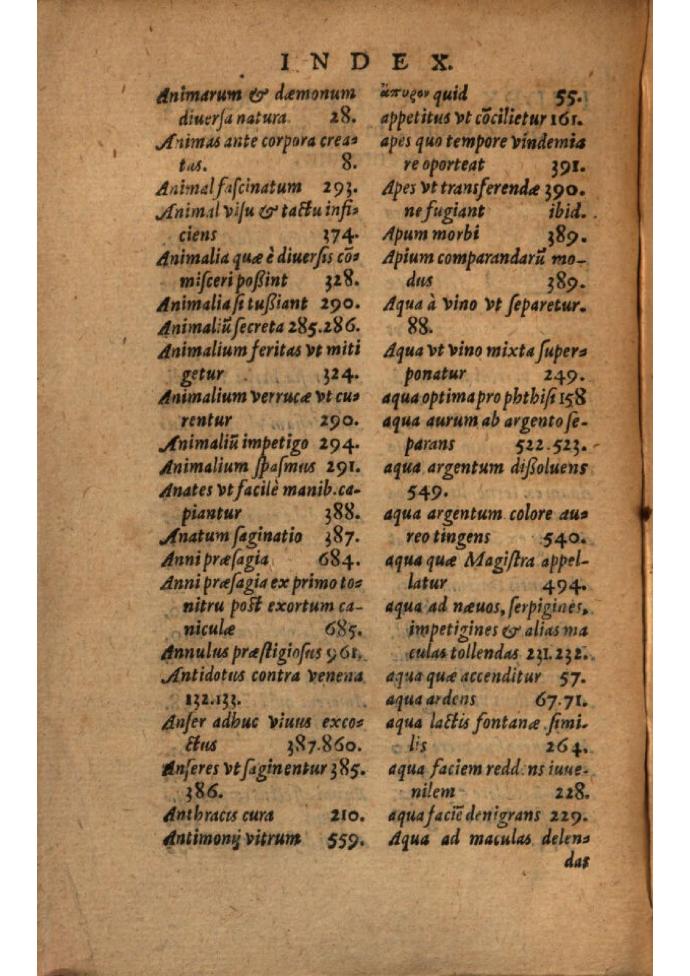 INDEX.
Animarum & dæmonum
diuersa natura. 28.
Animas ante corpora crea=
tas. 8.
Animal fascinatum 293.
Animal visu & tactu infi=
ciens 374.
Animalia quæ è diuersis cō=
misceri poßint 328.
Animalia si tußiant 290.
Animaliū secreta 285.286.
Animalium feritas vt miti
getur 324.
Animalium verrucæ vt cu=
rentur 290.
Animaliū impetigo 294.
Animalium spasmus 291.
Anates vt facilè manib.ca-
piantur 388.
Anatum saginatio 387.
Anni præsagia 684.
Anni præsagia ex primo to=
nitru post exortum ca-
niculæ 685.
Annulus præstigiosus 961.
Antidotus contra venena
132.133.
Anser adhuc viuus exco=
ctus 387.860.
Anseres vt saginentur 385.
386.
Anthracis cura 210.
Antimonij vitrum 559.
ἄπυρον quid 55.
appetitus vt cōcilietur 161.
apes quo tempore vindemia
re oporteat 391.
Apes vt transferendæ 390.
ne fugiant ibid.
Apum morbi 389.
Apium comparandarū mo-
dus 389.
Aqua à vino vt separetur.
88.
Aqua vt vino mixta super=
ponatur 249.
aqua optima pro phthisi 158
aqua aurum ab argento se-
parans 522.523.
aqua argentum dißoluens
549.
aqua argentum colore au=
reo tingens 540.
aqua quæ Magistra appel-
latur 494.
aqua ad næuos, serpigines,
impetigines & alias ma
culas tollendas 231.232.
aqua quæ accenditur 57.
aqua ardens 67.71.
aqua lactis fontanæ simi-
lis 264.
aqua faciem reddens iuue-
nilem 228.
aqua faciē denigrans 229.
Aqua ad maculas delen=
das